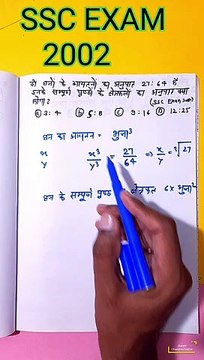 SSC EXAM
2002
दो घनों के आयतनों का अनुपात 27:64 है
उनके सम्पूर्ण पृष्ठों के क्षेत्रफलों का अनुपात क्या
होगा: (SSC Exam 2002)
Ⓐ 3:4 Ⓑ 5:8 Ⓒ 9:16 Ⓓ 12:25
घन का आयतन = भुजा³
x x³/y³ = 27/64 ⇒ x/y = ³√27
y
घन के सम्पूर्ण पृष्ठ 6 x भुजा²